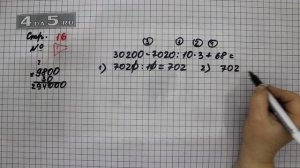 4 ДА5.RU
Стр. 16
№
③ ① ② ④
30200 - 7020 : 10 · 3 + 68 =
1) 7020 : 10 = 702 2) 702
× 9800
30
294000